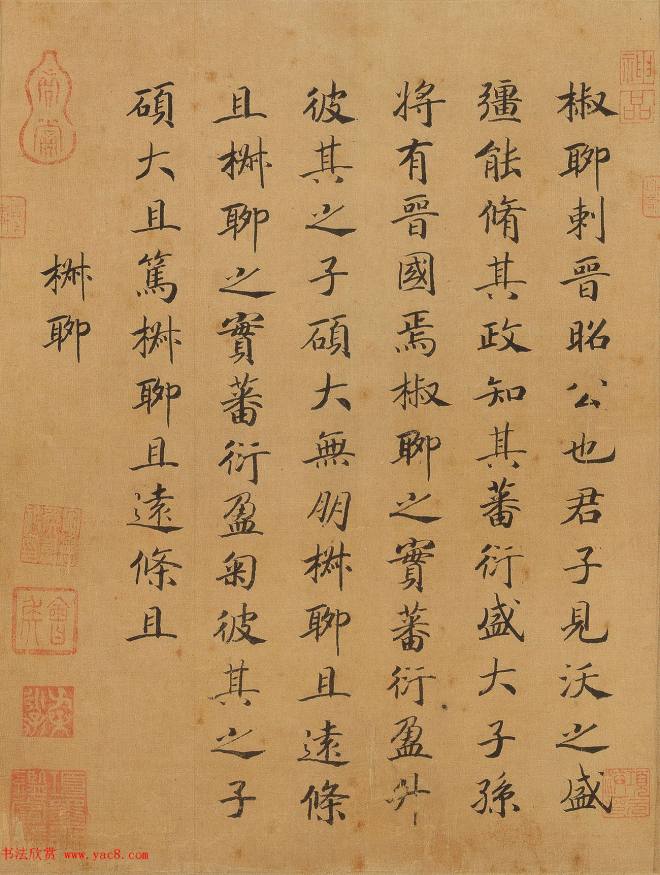 神品
椒聊刺晉昭公也君子見沃之盛
彊能脩其政知其蕃衍盛大子孫
將有晉國焉椒聊之實蕃衍盈升
彼其之子碩大無朋椒聊且遠條
且椒聊之實蕃衍盈匊彼其之子
碩大且篤椒聊且遠條且
椒聊
书法欣赏 www.yac8.com